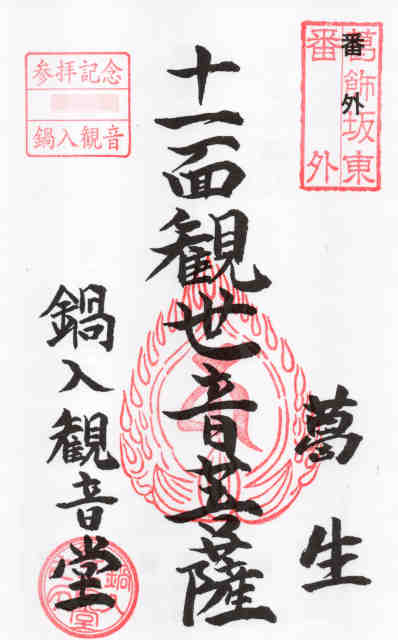 葛飾坂東
番外
番外
葛生
十一面観世音菩薩
参拝記念
鍋入観音
鍋入観音堂